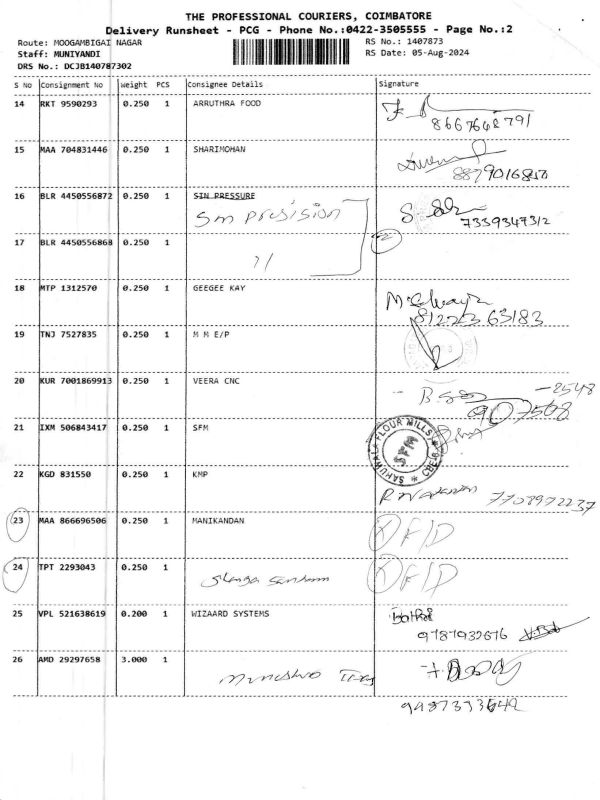 THE PROFESSIONAL COURIERS, COIMBATORE
Delivery Runsheet - PCG - Phone No.:0422-3505555 - Page No.:2
Route: MOOGAMBIGAI NAGAR
RS No.: 1407873
Staff: MUNIYANDI
RS Date: 05-Aug-2024
DRS No.: DCJB140787302
S No Consignment No Weight PCS Consignee Details Signature
14 RKT 9590293 0.250 1 ARRUTHRA FOOD
8667648791
15 MAA 704831446 0.250 1 SHARIMOHAN
16 BLR 4450556872 0.250 1 SIN PRESSURE
Sm presision
7339347312
17 BLR 4450556868 0.250 1
18 MTP 1312570 0.250 1 GEEGEE KAY
63183
19 TNJ 7527835 0.250 1 M M E/P
20 KUR 7001869913 0.250 1 VEERA CNC
21 IXM 506843417 0.250 1 SFM
SAHUWALA FLOUR MILLS
SFM
22 KGD 831550 0.250 1 KMP
7708972237
23 MAA 866696506 0.250 1 MANIKANDAN
F/D
24 TPT 2293043 0.250 1
F/D
25 VPL 521638619 0.200 1 WIZAARD SYSTEMS
9787932676
26 AMD 29297658 3.000 1